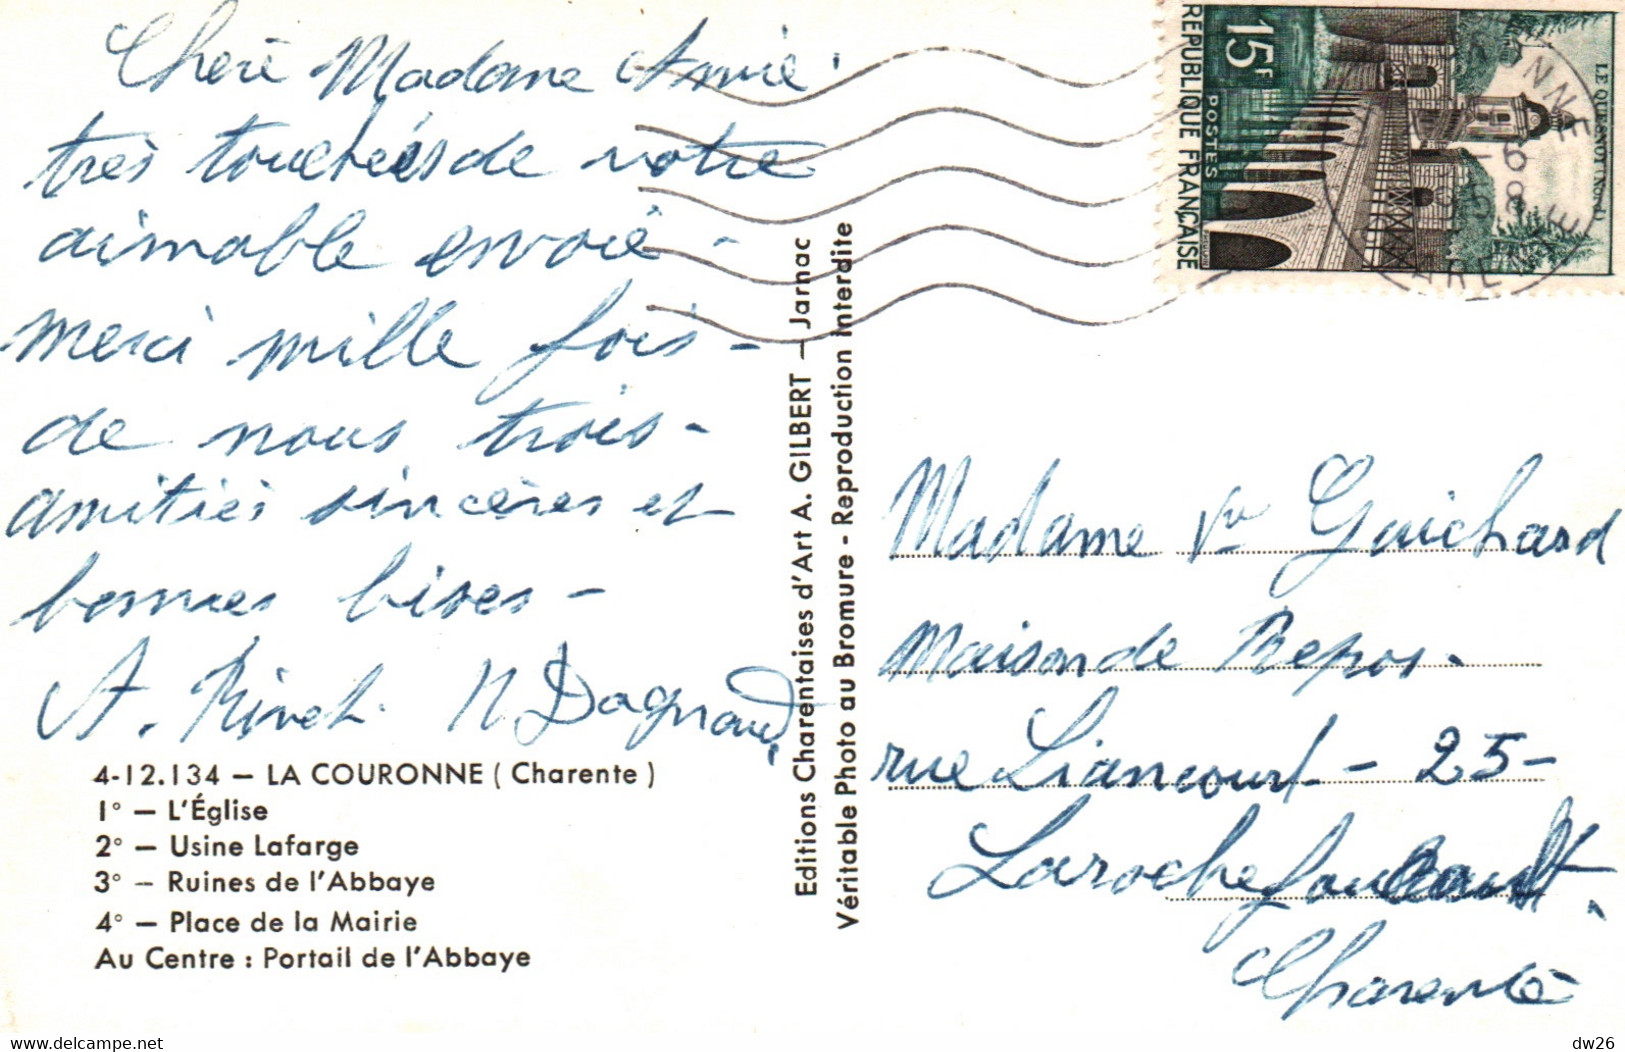 Chère Madame Amie.
très touchées de votre
aimable envoie -
merci mille fois -
de nous trois -
amitiés sincères et
bonnes bises -
A. Rivet. N. Dagnaud.
4-12.134 — LA COURONNE ( Charente )
1° — L'Église
2° — Usine Lafarge
3° — Ruines de l'Abbaye
4° — Place de la Mairie
Au Centre : Portail de l'Abbaye
Editions Charentaises d'Art A. GILBERT — Jarnac
Véritable Photo au Bromure - Reproduction interdite
15F
POSTES
REPUBLIQUE FRANÇAISE
LE QUESNOY (Nord)
Madame Vve Guichard
Maison de Repos -
rue Liancourt - 25 -
Larochefoucault.
Charente
delcampe.net
dw26